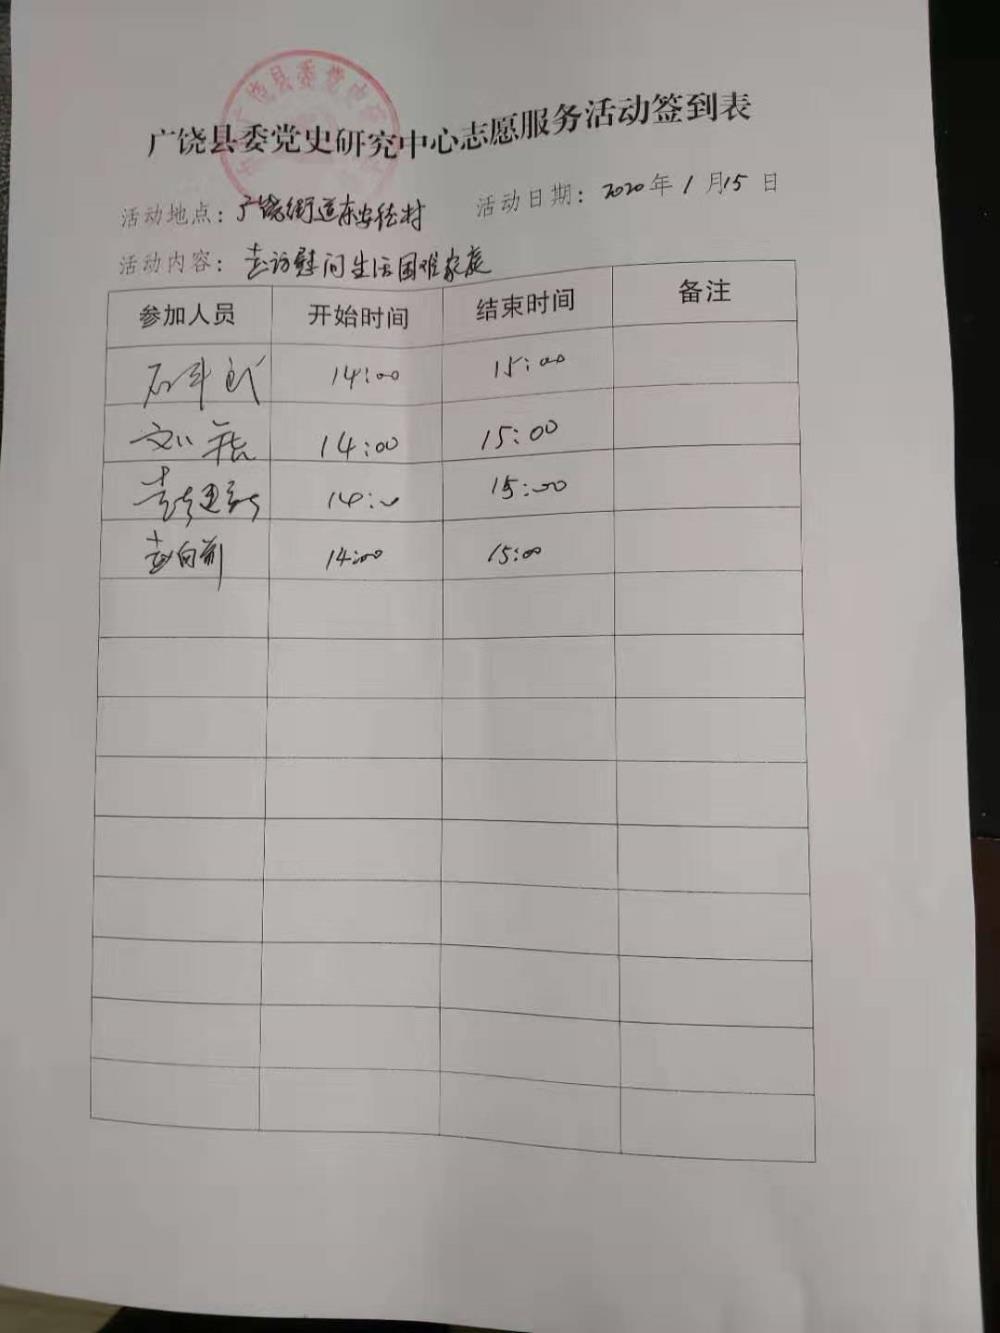 广饶县委党史研究中心志愿服务活动签到表
活动地点：广饶街道东安德村 活动日期：2020年1月15日
活动内容：走访慰问生活困难家庭
参加人员 开始时间 结束时间 备注
14:00 15:00
刘 14:00 15:00
14:00 15:00
赵向前 14:00 15:00